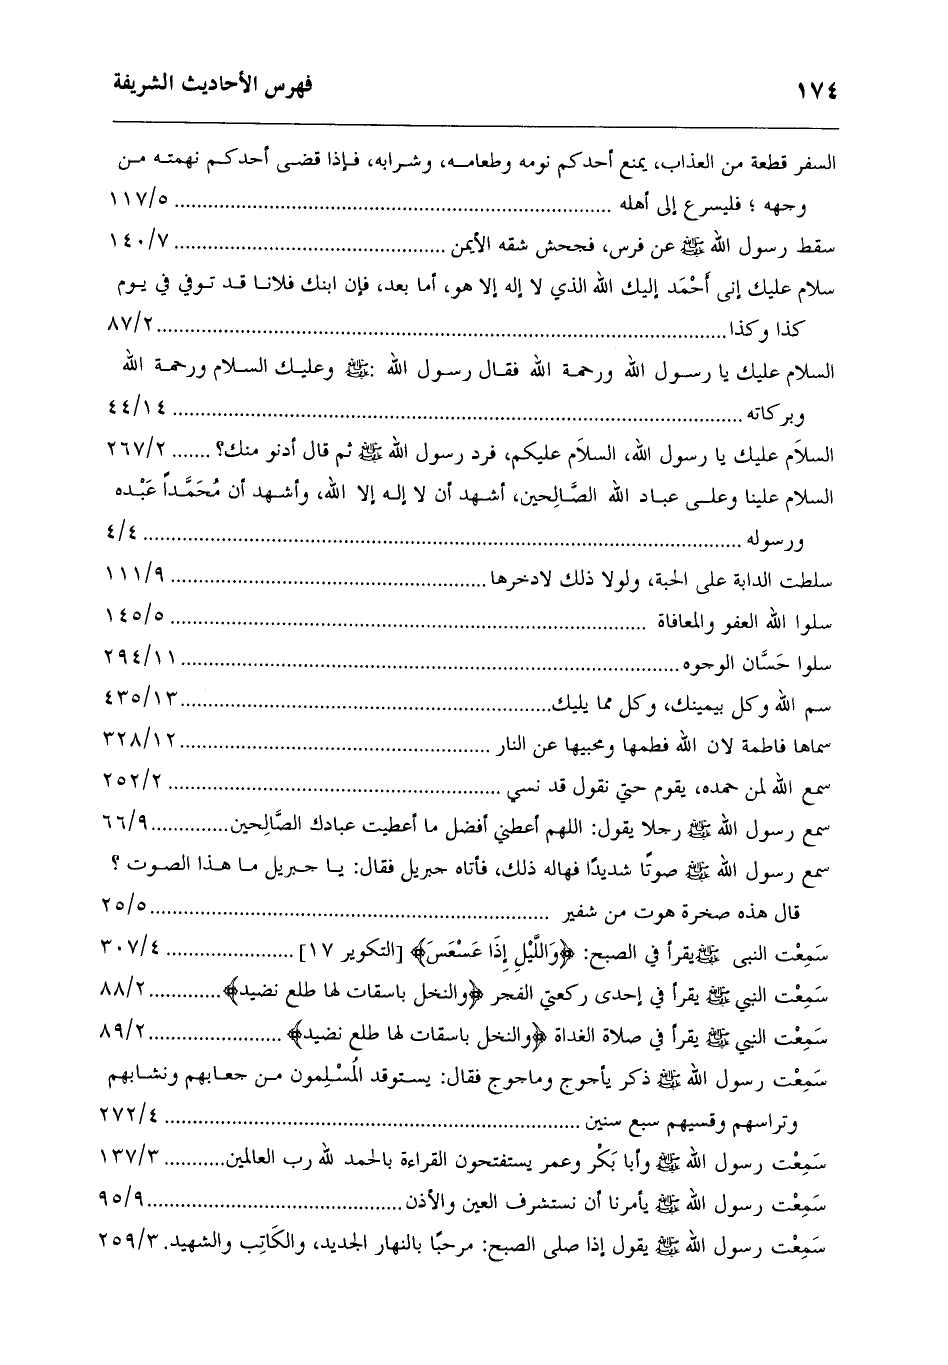 ١٧٤ فهرس الأحاديث الشريفة
السفر قطعة من العذاب، يمنع أحدكم نومه وطعامه، وشرابه، فإذا قضى أحدكم نهمته من
وجهه ؛ فليسرع إلى أهله ........ ١١٧/٥
سقط رسول الله ﷺ عن فرس، فجحش شقه الأيمن ........ ١٤٠/٧
سلام عليك إنى أَحْمَد إليك الله الذي لا إله إلا هو، أما بعد، فإن ابنك فلانا قد توفي في يوم
كذا وكذا ........ ٨٧/٢
السلام عليك يا رسول الله ورحمة الله فقال رسول الله ﷺ: وعليك السلام ورحمة الله
وبركاته ........ ٤٤/١٤
السلاَم عليك يا رسول الله، السلاَم عليكم، فرد رسول الله ﷺ ثم قال أدنو منك؟ ....... ٢٦٧/٢
السلام علينا وعلى عباد الله الصَّالِحين، أشهد أن لا إله إلا الله، وأشهد أن مُحَمَّداً عَبْده
ورسوله ........ ٤/٤
سلطت الدابة على الحبة، ولولا ذلك لادخرها ........ ١١١/٩
سلوا الله العفو والمعافاة ........ ١٤٥/٥
سلوا حَسَّان الوحوه ........ ٢٩٤/١١
سم الله وكل بيمينك، وكل مما يليك ........ ٤٣٥/١٣
سماها فاطمة لان الله فطمها ومحبيها عن النار ........ ٣٢٨/١٢
سمع الله لمن حمده، يقوم حتي نقول قد نسي ........ ٢٥٢/٢
سمع رسول الله ﷺ رجلا يقول: اللهم أعطني أفضل ما أعطيت عبادك الصَّالِحين ........ ٦٦/٩
سمع رسول الله ﷺ صوتًا شديدًا فهاله ذلك، فأتاه جبريل فقال: يا جبريل ما هذا الصوت ؟
قال هذه صخرة هوت من شفير ........ ٢٥/٥
سَمِعْت النبى ﷺ يقرأ في الصبح: ﴿وَاللَّيْلِ إِذَا عَسْعَسَ﴾ [التكوير ١٧] ........ ٣٠٧/٤
سَمِعْت النبي ﷺ يقرأ في إحدى ركعتي الفجر ﴿والنخل باسقات لها طلع نضيد﴾ ........ ٨٨/٢
سَمِعْت النبي ﷺ يقرأ في صلاة الغداة ﴿والنخل باسقات لها طلع نضيد﴾ ........ ٨٩/٢
سَمِعْت رسول الله ﷺ ذكر يأجوج وماجوج فقال: يستوقد المُسْلِمون من جعابهم ونشابهم
وتراسهم وقسيهم سبع سنين ........ ٢٧٢/٤
سَمِعْت رسول الله ﷺ وأبا بَكْر وعمر يستفتحون القراءة بالحمد لله رب العالمين ........ ١٣٧/٣
سَمِعْت رسول الله ﷺ يأمرنا أن نستشرف العين والأذن ........ ٩٥/٩
سَمِعْت رسول الله ﷺ يقول إذا صلى الصبح: مرحبًا بالنهار الجديد، والكَاتِب والشهيد. ٢٥٩/٣